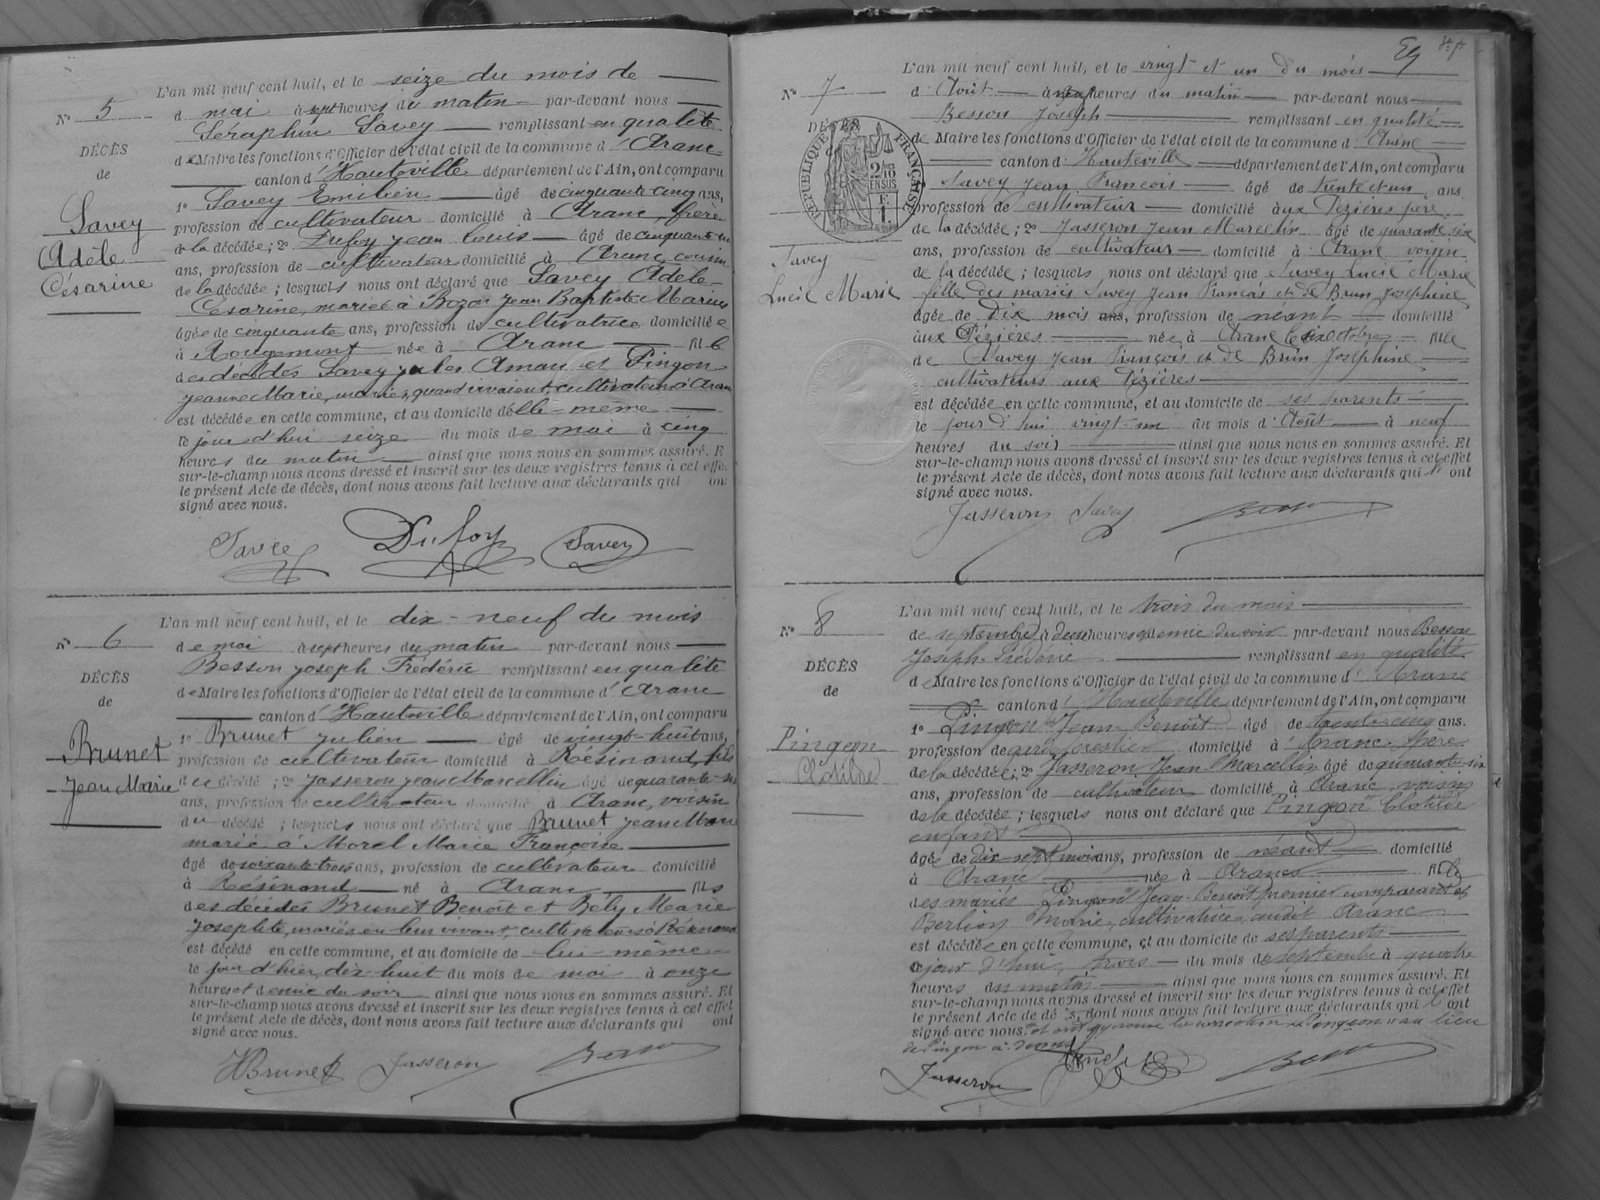 L'an mil neuf cent huit, et le seize du mois de
N° 5 d mai à sept heures du matin par-devant nous
Seraphin Savey remplissant en qualité
DÉCÈS
de Maire les fonctions d'Officier de l'état civil de la commune d' Aranc
de
canton d' Hauteville département de l'Ain, ont comparu
1° Savey Emilien âgé de cinquante cinq ans,
Savey
profession de cultivateur domicilié à Aranc, frère
Adèle
de la décédée ; 2° Dufoy jean Louis âgé de cinquante
Césarine
ans, profession de cultivateur domicilié à Aranc, cousin
de la décédée ; lesquels nous ont déclaré que Savey Adèle
Cesarine, mariée à jean Baptiste Marius
âgée de cinquante ans, profession de cultivatrice domiciliée
à Rougemont née à Aranc fille
des décédés Savey jules Aman et Pingon
jeanne Marie, mariés, quand vivaient, cultivateurs à Aranc
est décédée en cette commune, et au domicile d'elle-même
le jour d'hui seize du mois de mai à cinq
heures du matin ainsi que nous nous en sommes assuré. Et
sur-le-champ nous avons dressé et inscrit sur les deux registres tenus à cet effet
le présent Acte de décès, dont nous avons fait lecture aux déclarants qui ont
signé avec nous.
Savey Dufoy Savey
L'an mil neuf cent huit, et le dix-neuf du mois
N° 6 de mai à sept heures du matin par-devant nous
Besson joseph Frédéric remplissant en qualité
DÉCÈS
de Maire les fonctions d'Officier de l'état civil de la commune d' Aranc
de
canton d' Hauteville département de l'Ain, ont comparu
1° Brunet julien âgé de vingt-huit ans,
Brunet
profession de cultivateur domicilié à Résinand, fils
Jean Marie
du décédé ; 2° Jasseron jean Marcellin âgé de quarante-six
ans, profession de cultivateur domicilié à Aranc, voisin
du décédé ; lesquels nous ont déclaré que Brunet jean Marie
marié à Morel Marie Françoise
âgé de soixante-trois ans, profession de cultivateur domicilié
à Résinand né à Aranc fils
des décédés Brunet Benoît et Bély Marie
Josephte, mariés en leur vivant, cultivateurs à Résinand
est décédé en cette commune, et au domicile de lui-même
le jour d'hier, dix-huit du mois de mai à onze
heures et demie du soir ainsi que nous nous en sommes assuré. Et
sur-le-champ nous avons dressé et inscrit sur les deux registres tenus à cet effet
le présent Acte de décès, dont nous avons fait lecture aux déclarants qui ont
signé avec nous.
Brunet Jasseron Besson
L'an mil neuf cent huit, et le vingt et un du mois
N° 7 d'Août à heures du matin par-devant nous
Besson Joseph remplissant en qualité
DÉCÈS
de Maire les fonctions d'Officier de l'état civil de la commune d' Aranc
RÉPUBLIQUE FRANÇAISE
canton d' Hauteville département de l'Ain, ont comparu
Savey Jean François âgé de trente et un ans
profession de cultivateur domicilié aux Pézières père
de la décédée ; 2° Jasseron Jean Marcelin âgé de quarante six
ans, profession de cultivateur domicilié à Aranc voisin
Savey
de la décédée ; lesquels nous ont déclaré que Savey Lucie Marie
Lucie Marie
fille des mariés Savey Jean François et de Brun Joséphine
âgée de dix mois ans, profession de néant domicilié
aux Pézières née à Aranc le octobre fille
de Savey Jean François et de Brun Joséphine
cultivateurs aux Pézières
est décédée en cette commune, et au domicile de ses parents
le jour d'hui vingt-un du mois d'Août à neuf
heures du soir ainsi que nous nous en sommes assuré. Et
sur-le-champ nous avons dressé et inscrit sur les deux registres tenus à cet effet
le présent Acte de décès, dont nous avons fait lecture aux déclarants qui ont
signé avec nous.
Jasseron Savey Besson
L'an mil neuf cent huit, et le trois du mois
N° 8 de septembre à deux heures et demie du soir par-devant nous Besson
Joseph Frédéric remplissant en qualité
DÉCÈS
de Maire les fonctions d'Officier de l'état civil de la commune d' Aranc
de
canton d' Hauteville département de l'Ain, ont comparu
1° Pingeon Jean Benoît âgé de trente cinq ans.
Pingeon
profession de garde forestier domicilié à Aranc père
Clotilde
de la décédée ; 2° Jasseron Jean Marcellin âgé de quarante-six
ans, profession de cultivateur domicilié à Aranc voisin
de la décédée ; lesquels nous ont déclaré que Pingeon Clotilde
enfant
âgée de dix-sept mois ans, profession de néant domicilié
à Aranc née à Aranc fille
des mariés Pingeon Jean Benoît premier comparant et
Berlion Marie, cultivatrice audit Aranc
est décédée en cette commune, et au domicile de ses parents
le jour d'hui trois du mois de septembre à quatre
heures du matin ainsi que nous nous en sommes assuré. Et
sur-le-champ nous avons dressé et inscrit sur les deux registres tenus à cet effet
le présent Acte de décès, dont nous avons fait lecture aux déclarants qui ont
signé avec nous. Pingeon au lieu
de Pingon
Jasseron Besson